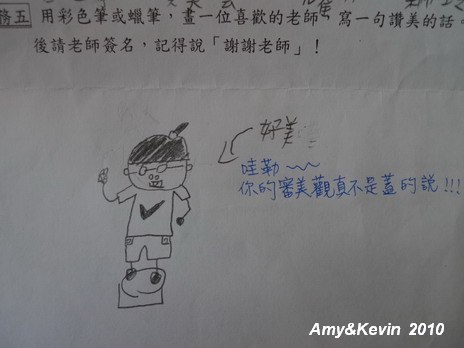 格五 用彩色筆或蠟筆，畫一位喜歡的老師，寫一句讚美的話。
後請老師簽名，記得說「謝謝老師」！
好美
哇勒~~
你的審美觀真不是蓋的說!!!
Amy&Kevin 2010